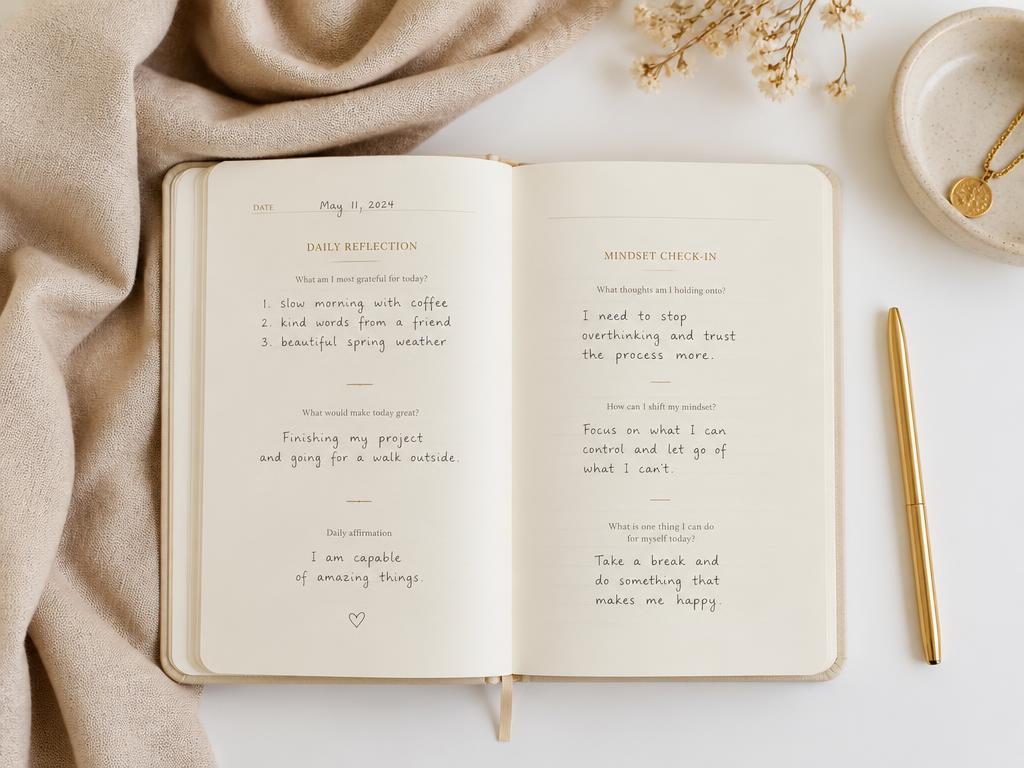 DATE May 11, 2024
DAILY REFLECTION
What am I most grateful for today?
1. slow morning with coffee
2. kind words from a friend
3. beautiful spring weather
What would make today great?
Finishing my project
and going for a walk outside.
Daily affirmation
I am capable
of amazing things.
MINDSET CHECK-IN
What thoughts am I holding onto?
I need to stop
overthinking and trust
the process more.
How can I shift my mindset?
Focus on what I can
control and let go of
what I can't.
What is one thing I can do
for myself today?
Take a break and
do something that
makes me happy.